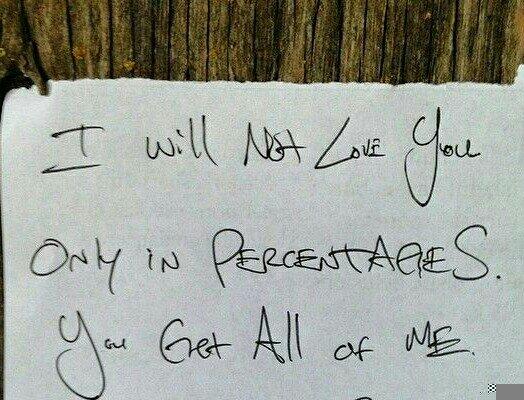 I will Not Love You
Only in Percentages.
You Get All of Me.